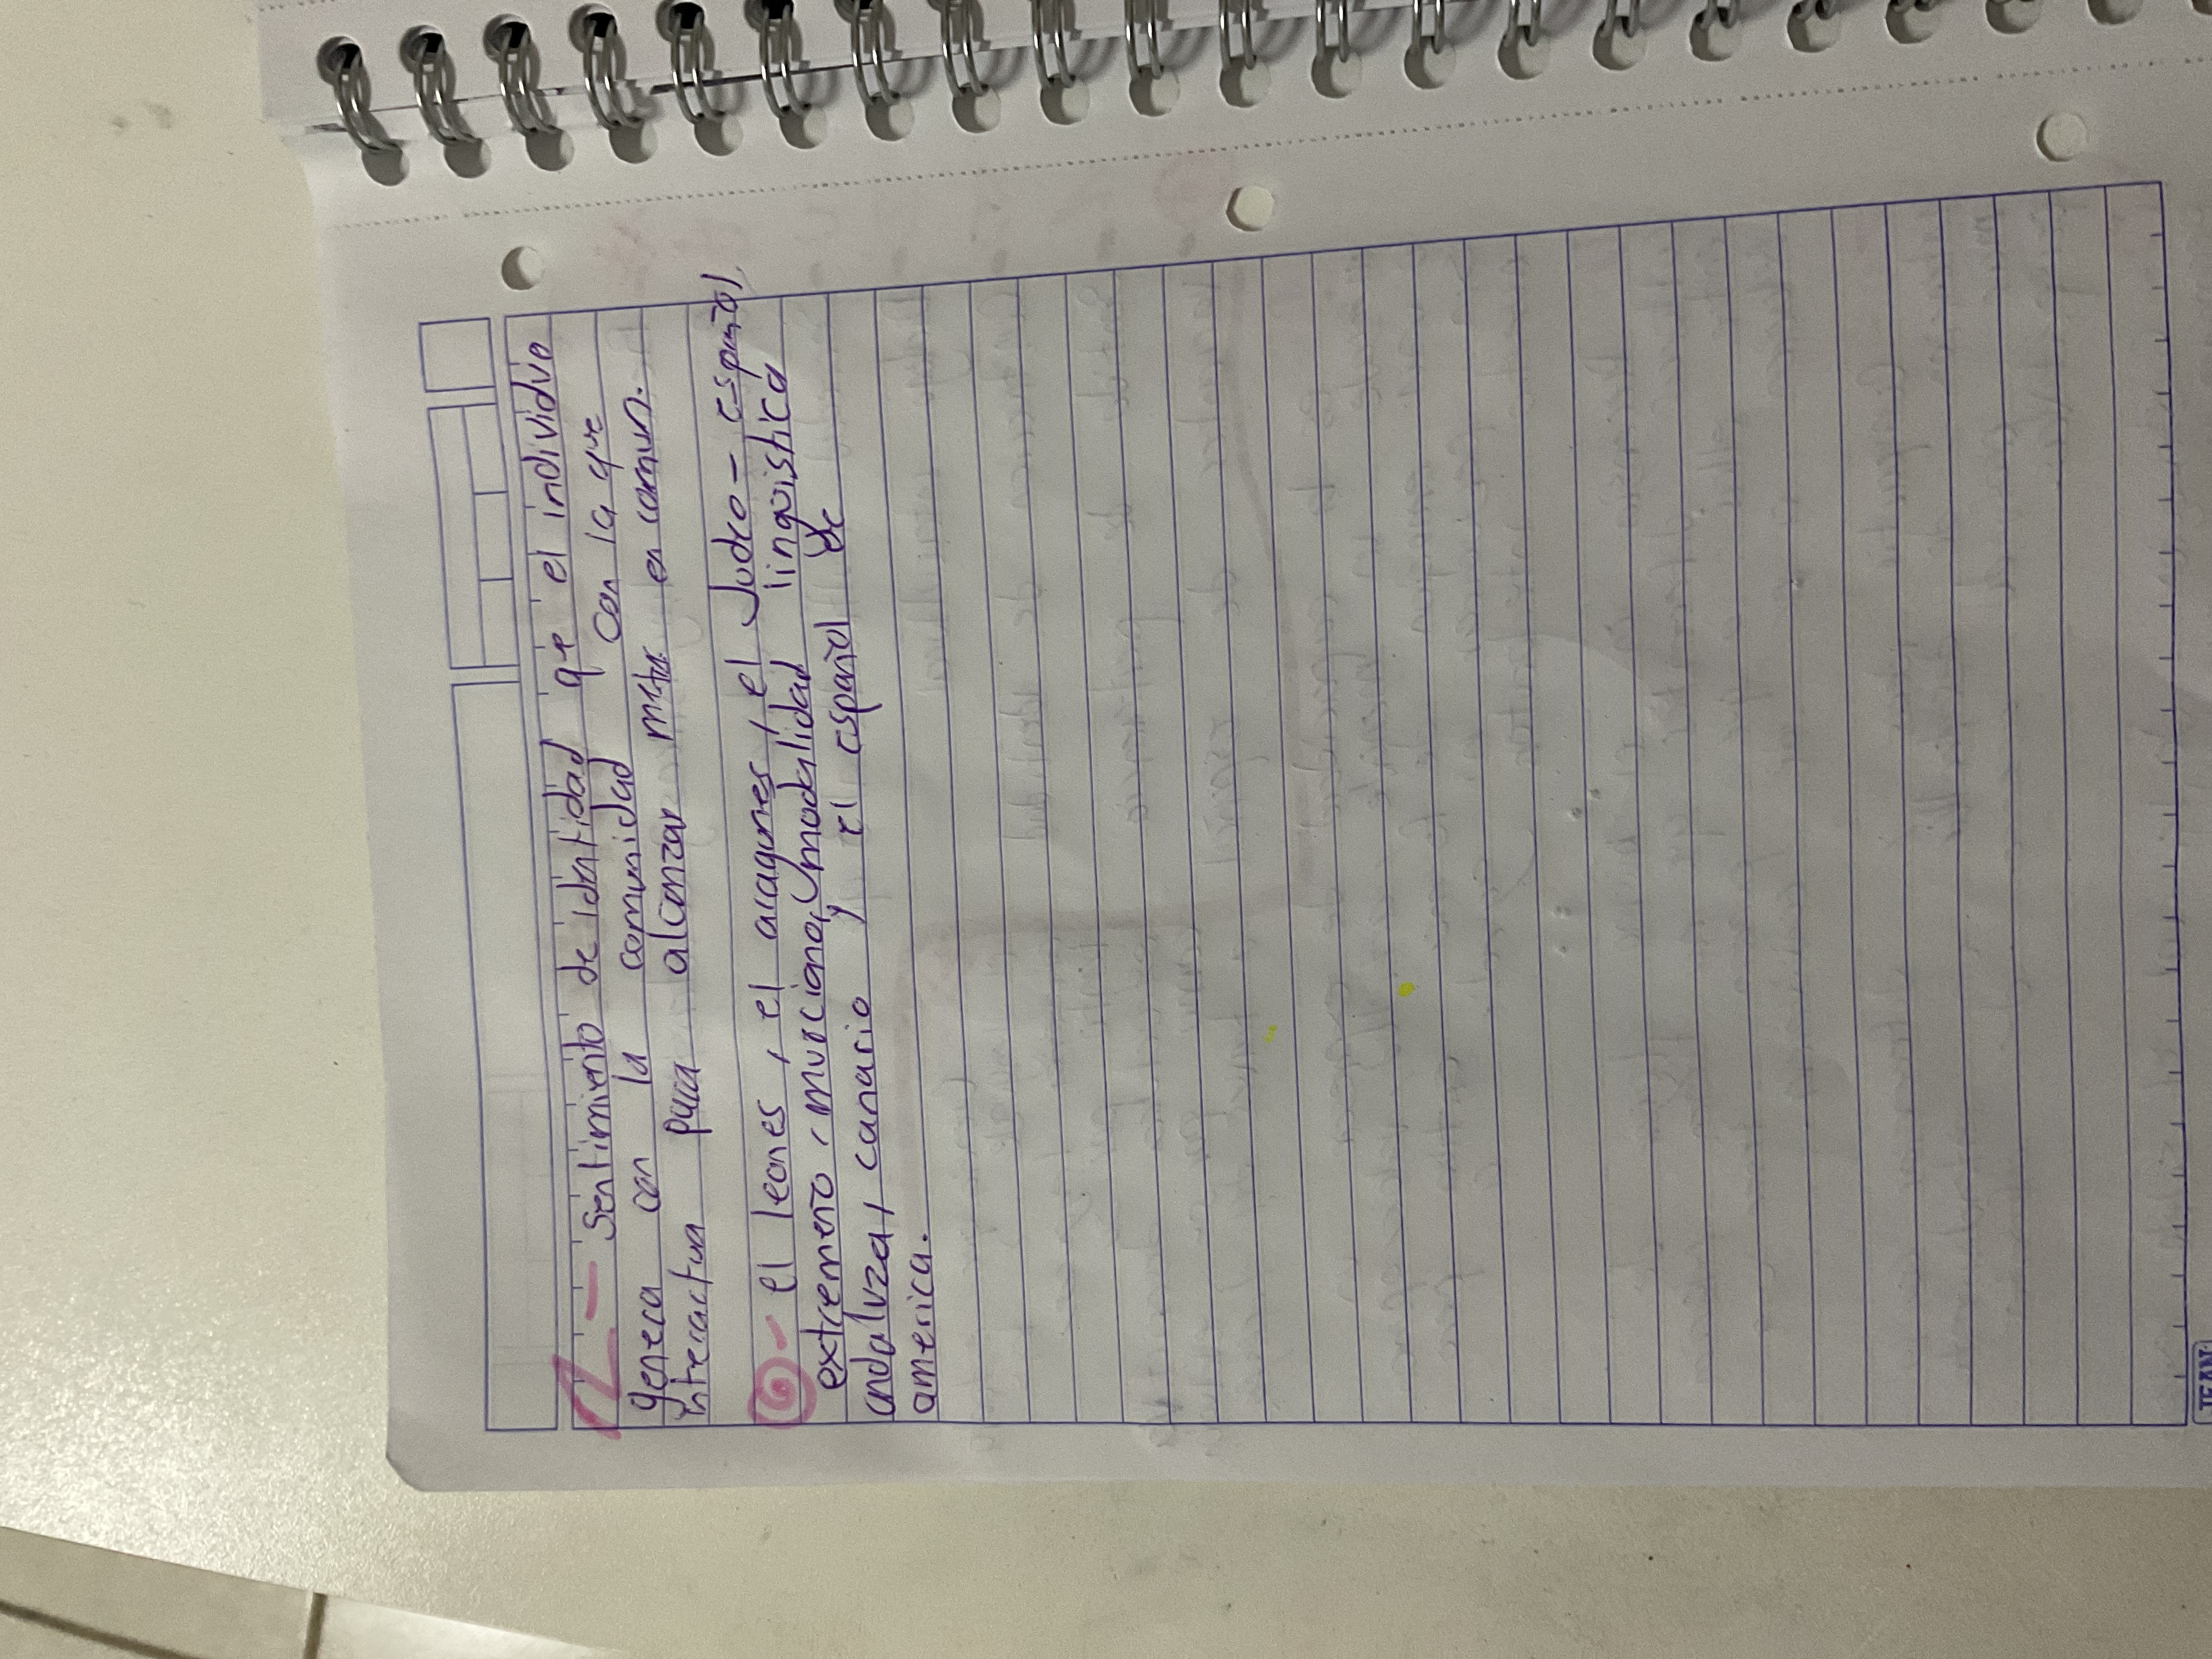 - Sentimiento de identidad que el individuo
genera con la comunidad con la que
interactua para alcanzar metas en comun.
6- el leones, el aragones, el Judeo-español,
extremeño, murciano, (modalidad lingüistica
andaluza, canario y el español de
america.